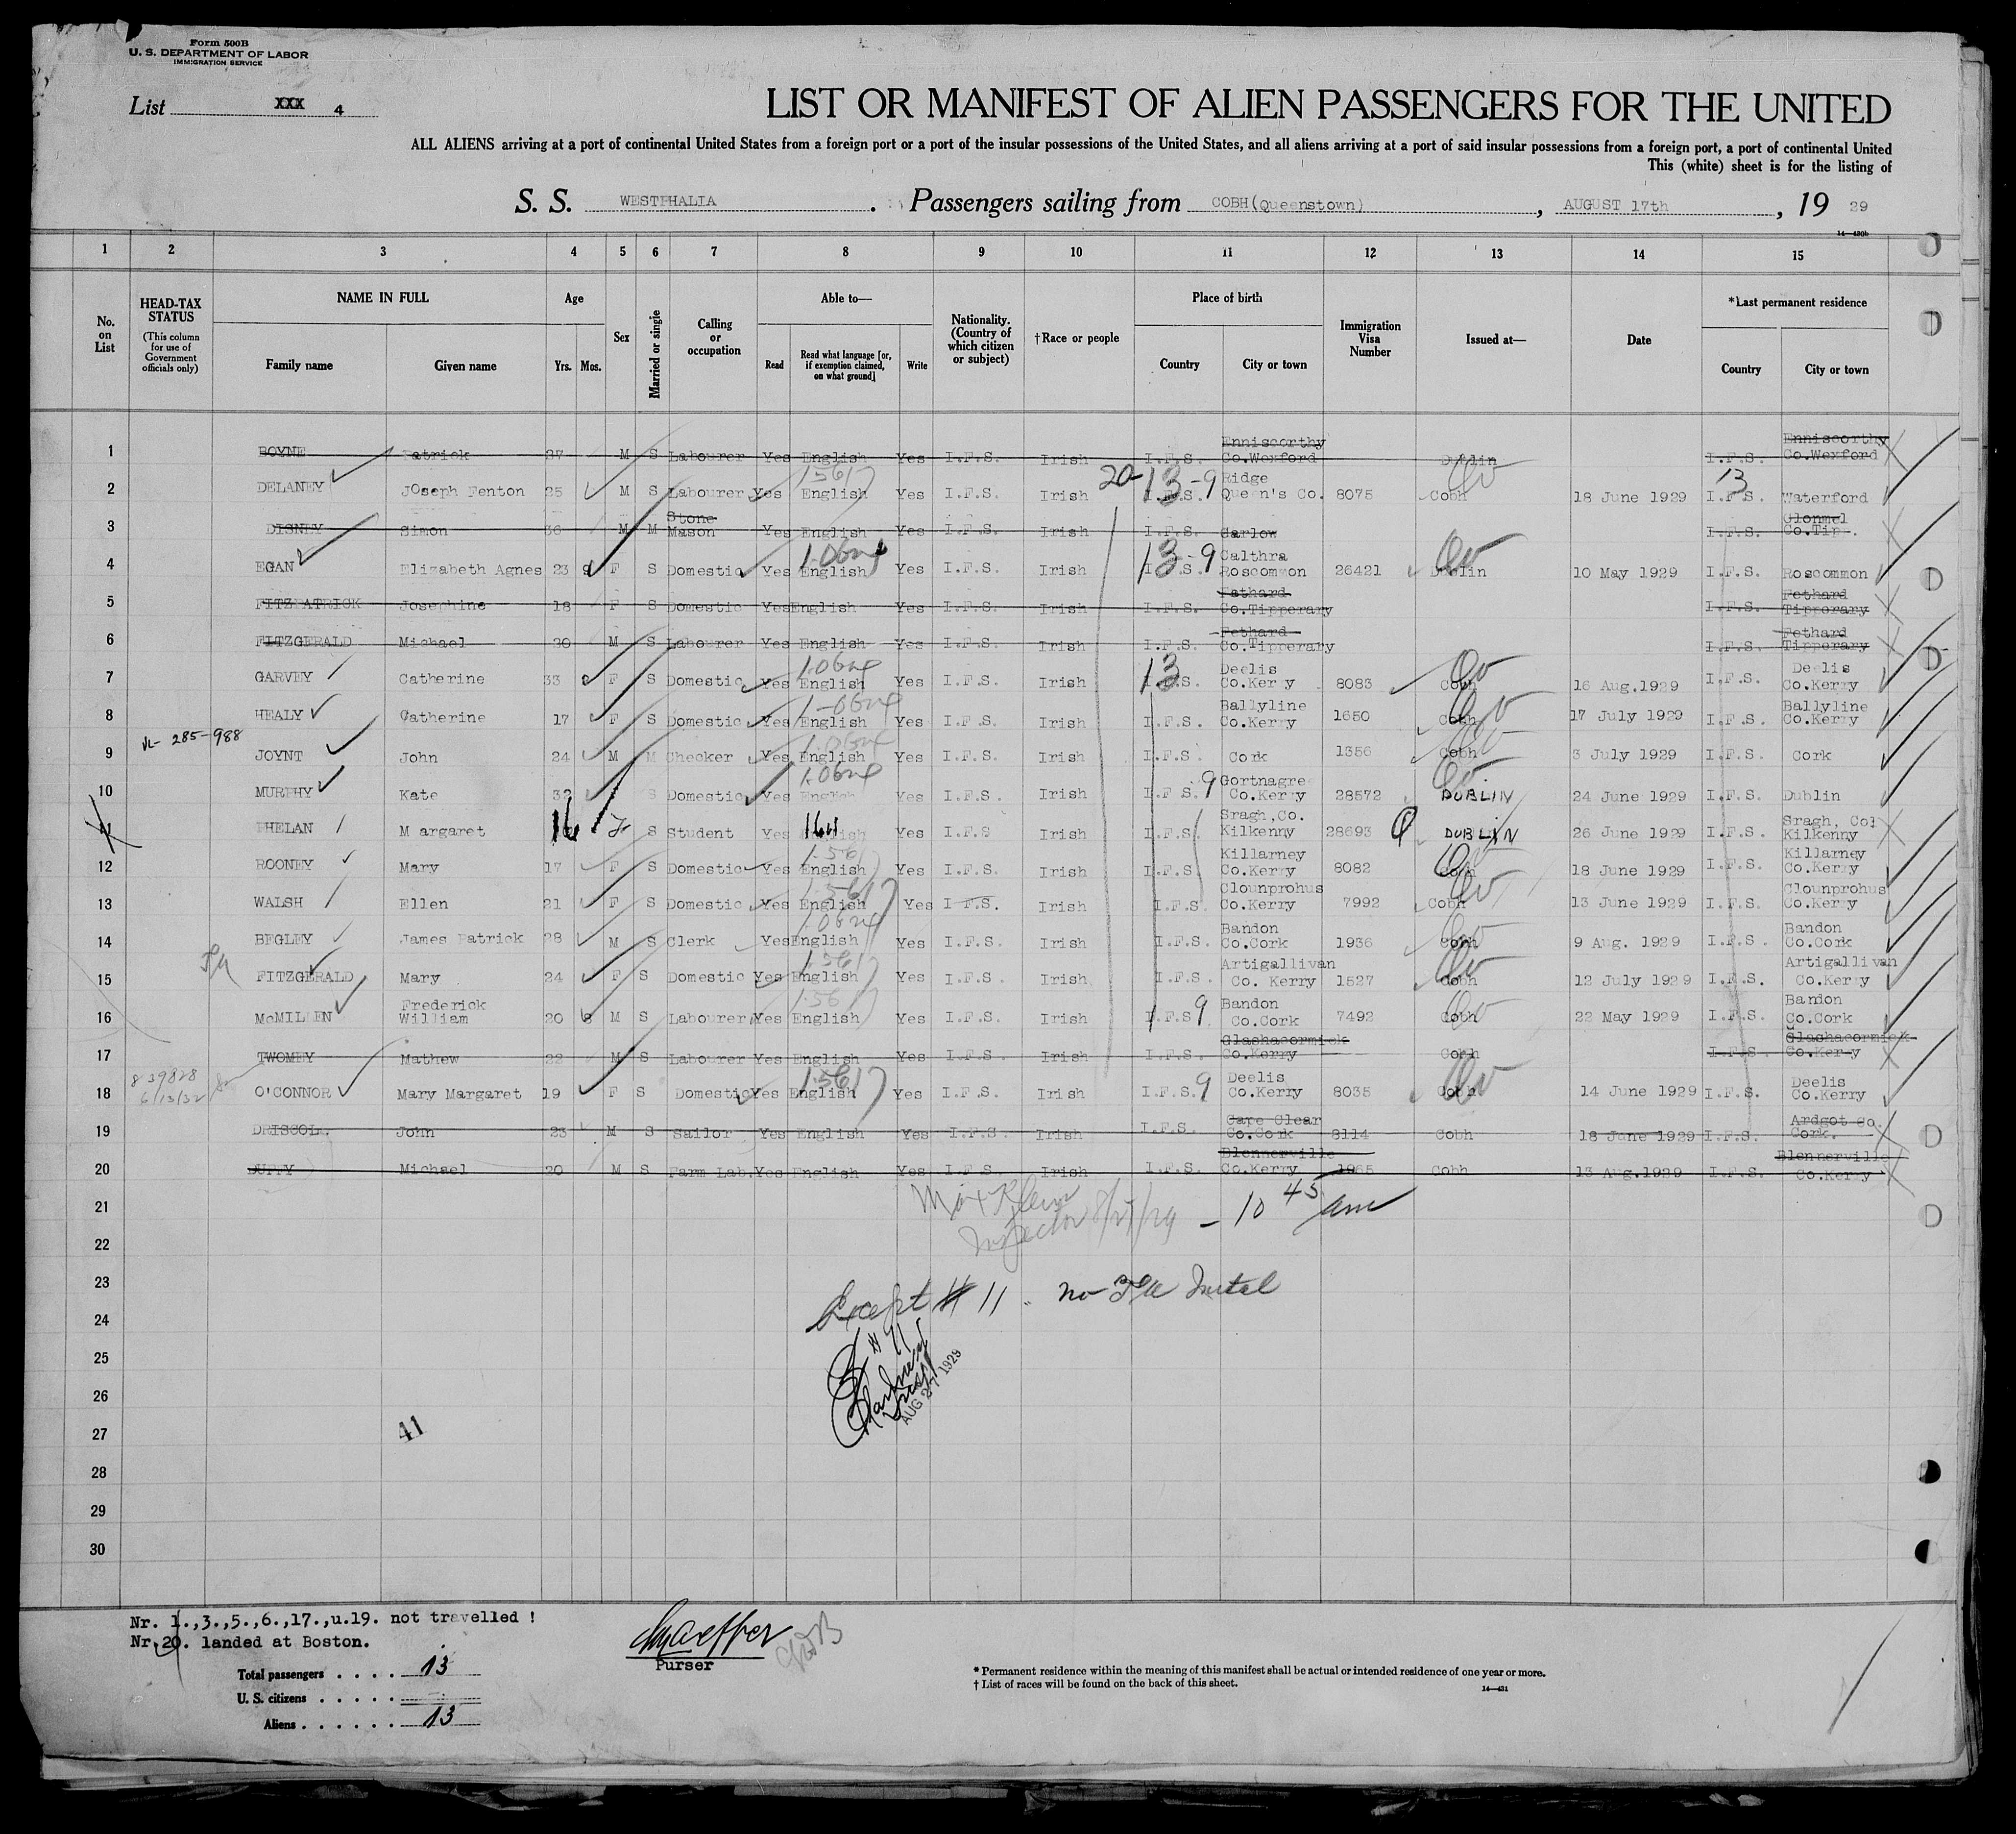 Form 500B
U. S. DEPARTMENT OF LABOR
IMMIGRATION SERVICE
List XXX 4
LIST OR MANIFEST OF ALIEN PASSENGERS FOR THE UNITED
ALL ALIENS arriving at a port of continental United States from a foreign port or a port of the insular possessions of the United States, and all aliens arriving at a port of said insular possessions from a foreign port, a port of continental United
This (white) sheet is for the listing of
S. S. WESTPHALIA . Passengers sailing from COBH(Queenstown) , AUGUST 17th , 19 29
14—430b
1 2 3 4 5 6 7 8 9 10 11 12 13 14 15
No. on List
HEAD-TAX STATUS (This column for use of Government officials only)
NAME IN FULL
Family name Given name
Age
Yrs. Mos.
Sex
Married or single
Calling or occupation
Able to—
Read Read what language [or, if exemption claimed, on what ground] Write
Nationality. (Country of which citizen or subject)
†Race or people
Place of birth
Country City or town
Immigration Visa Number
Issued at—
Date
*Last permanent residence
Country City or town
1 BOYNE Patrick 37 M S Labourer Yes English Yes I.F.S. Irish I.F.S. Enniscorthy Co.Wexford Dublin I.F.S. Enniscorthy Co.Wexford
2 DELANEY JOseph Fenton 25 M S Labourer Yes English Yes I.F.S. Irish 20-13-9 I.F.S. Ridge Queen's Co. 8075 Cobh 18 June 1929 13 I.F.S. Waterford
3 DISNEY Simon 36 M M Stone Mason Yes English Yes I.F.S. Irish I.F.S. Carlow I.F.S. Clonmel Co.Tip.
4 EGAN Elizabeth Agnes 23 9 F S Domestic Yes English Yes I.F.S. Irish 13-9 I.F.S. Calthra Roscommon 26421 Dublin 10 May 1929 I.F.S. Roscommon
5 FITZPATRICK Josephine 18 F S Domestic Yes English Yes I.F.S. Irish I.F.S. Fathard Co.Tipperary I.F.S. Fethard Tipperary
6 FITZGERALD Michael 20 M S Labourer Yes English Yes I.F.S. Irish I.F.S. Fethard Co.Tipperary I.F.S. Fethard Tipperary
7 GARVEY Catherine 33 F S Domestic Yes English Yes I.F.S. Irish 13 I.F.S. Deelis Co.Kerry 8083 Cobh 16 Aug.1929 I.F.S. Deelis Co.Kerry
8 HEALY Catherine 17 F S Domestic Yes English Yes I.F.S. Irish I.F.S. Ballyline Co.Kerry 1650 Cobh 17 July 1929 I.F.S. Ballyline Co.Kerry
VL- 285-988
9 JOYNT John 24 M M Checker Yes English Yes I.F.S. Irish I.F.S. Cork 1356 Cobh 3 July 1929 I.F.S. Cork
10 MURPHY Kate 32 S Domestic Yes English Yes I.F.S. Irish I.F.S. 9 Gortnagree Co.Kerry 28572 DUBLIN 24 June 1929 I.F.S. Dublin
11 PHELAN M argaret 16 F S Student Yes 1.64 Yes I.F.S Irish I.F.S Sragh,Co. Kilkenny 28693 DUBLIN 26 June 1929 I.F.S. Sragh, Co. Kilkenny
12 ROONEY Mary 17 F S Domestic Yes English Yes I.F.S. Irish I.F.S. Killarney Co.Kerry 8082 Cobh 18 June 1929 I.F.S. Killarney Co.Kerry
13 WALSH Ellen 21 F S Domestic Yes English Yes I.F.S. Irish I.F.S. Clounprohus Co.Kerry 7992 Cobh 13 June 1929 I.F.S. Clounprohus Co.Kerry
14 BEGLEY James Patrick 28 M S Clerk Yes English Yes I.F.S. Irish I.F.S. Bandon Co.Cork 1936 Cobh 9 Aug. 1929 I.F.S. Bandon Co.Cork
15 FITZGERALD Mary 24 F S Domestic Yes English Yes I.F.S. Irish I.F.S. Artigallivan Co. Kerry 1527 Cobh 12 July 1929 I.F.S. Artigallivan Co.Kerry
16 McMILLEN Frederick William 20 8 M S Labourer Yes English Yes I.F.S. Irish I.F.S 9 Bandon Co.Cork 7492 Cobh 22 May 1929 I.F.S. Bandon Co.Cork
17 TWOMEY Mathew 22 M S Labourer Yes English Yes I.F.S. Irish I.F.S. Glashacormick Co.Kerry Cobh I.F.S. Glashacormick Co.Kerry
8 39828
6/13/32
18 O'CONNOR Mary Margaret 19 F S Domestic Yes English Yes I.F.S. Irish I.F.S. 9 Deelis Co.Kerry 8035 Cobh 14 June 1929 I.F.S. Deelis Co.Kerry
19 DRISCOLL John 23 M S Sailor Yes English Yes I.F.S. Irish I.F.S. Cape Clear Co.Cork 8114 Cobh 18 June 1929 I.F.S. Ardgot Co. Cork.
20 DUFFY Michael 20 M S Farm Lab. Yes English Yes I.F.S. Irish I.F.S. Blennerville Co.Kerry 1965 Cobh 13 Aug.1929 I.F.S. Blennerville Co.Kerry
21
Max Klein
Inspector 8/27/29 - 10 45 am
22
23
Except # 11 no
24
25
# 11
AUG 27 1929
26
27
41
28
29
30
Nr. 1.,3.,5.,6.,17.,u.19. not travelled !
Nr.20. landed at Boston.
Purser
Total passengers . . . . 13
U. S. citizens . . . . .
Aliens . . . . . . 13
* Permanent residence within the meaning of this manifest shall be actual or intended residence of one year or more.
† List of races will be found on the back of this sheet.
14—431